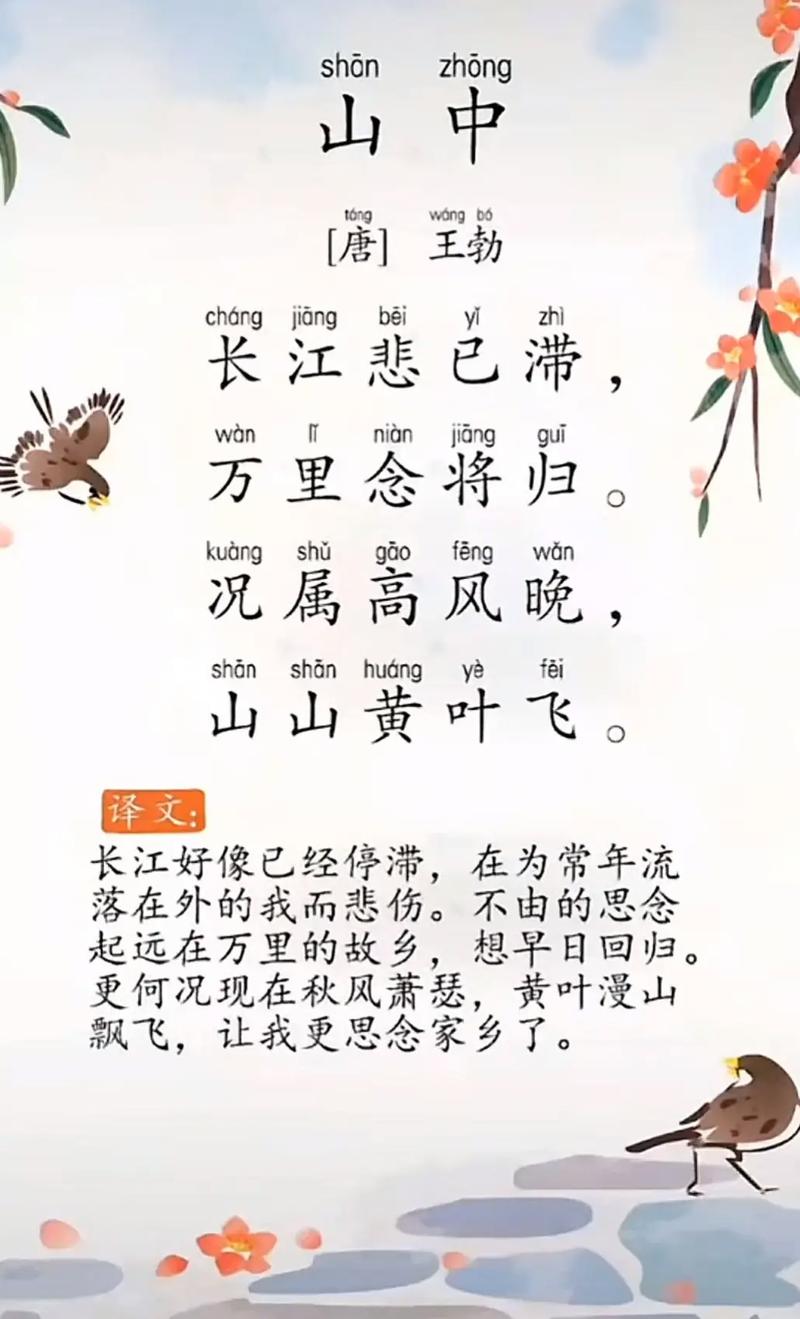 shān zhōng
山 中
táng wáng bó
[唐] 王勃
cháng jiāng bēi yǐ zhì
长江悲已滞，
wàn lǐ niàn jiāng guī
万里念将归。
kuàng shǔ gāo fēng wǎn
况属高风晚，
shān shān huáng yè fēi
山山黄叶飞。
译文：
长江好像已经停滞，在为常年流
落在外的我而悲伤。不由的思念
起远在万里的故乡，想早日回归。
更何况现在秋风萧瑟，黄叶漫山
飘飞，让我更思念家乡了。